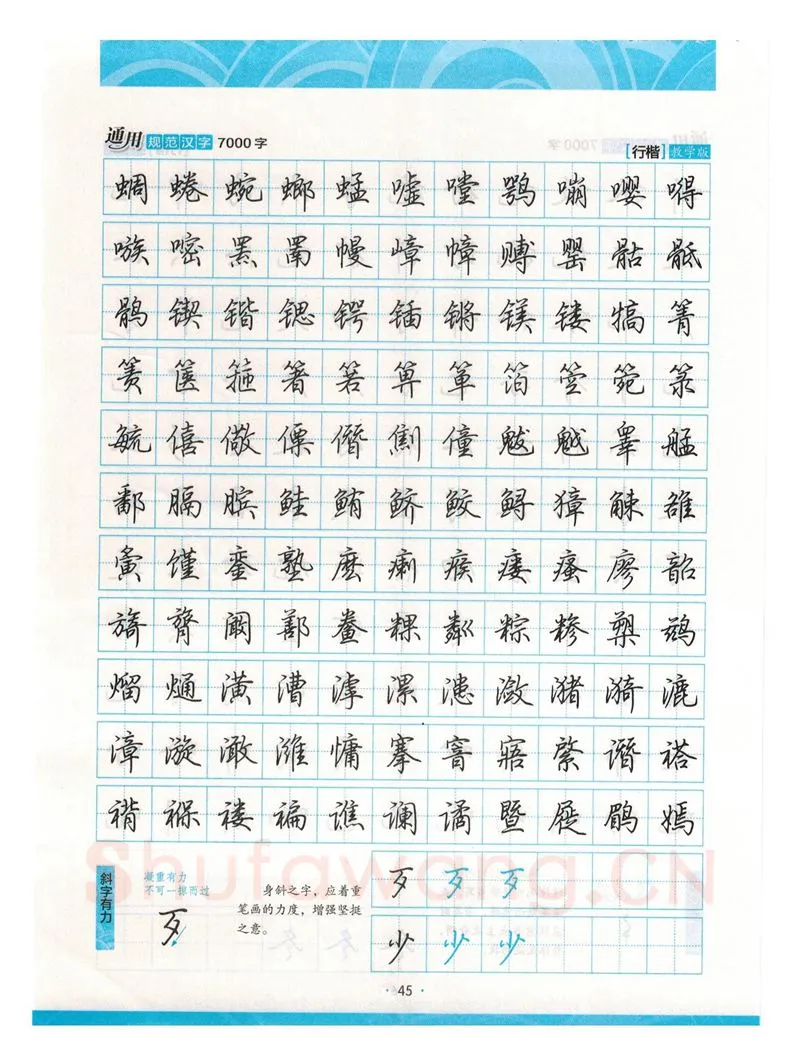 通用规范汉字7000字
[行楷]教学版
蜩蜷蜿螂蜢嘘嘡鹗嘣嘤嘚
嗾嘧罴罱幔嶂幛赙罂骷骶
鹘锲锴锶锷锸锵镁镂犒箐
箦箧箍箸箬箅箪箔箜箢箓
毓僖儆僳僭劁僮魃魆睾艋
鄱膈膑鲑鲔鲚鲛鲟獐觫雒
夤馑銮塾麽瘌瘊瘘瘙廖韶
旖膂阚鄯鲞粿粼粽糁槊鹚
熘熥潢漕滹漯漶潋潴漪漉
漳漩澉潍慵搴窨寤綮谮褡
褙褓褛褊谯谰谲暨屣鹛嫣
Shufawang.CN
斜字有力
凝重有力
不可一掠而过
歹
身斜之字，应着重
笔画的力度，增强坚挺
之意。
歹歹歹
少少少
·45·